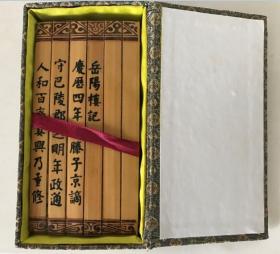 岳陽樓記
慶曆四年　滕子京謫
守巴陵郡　明年政通
人和百　興乃重修